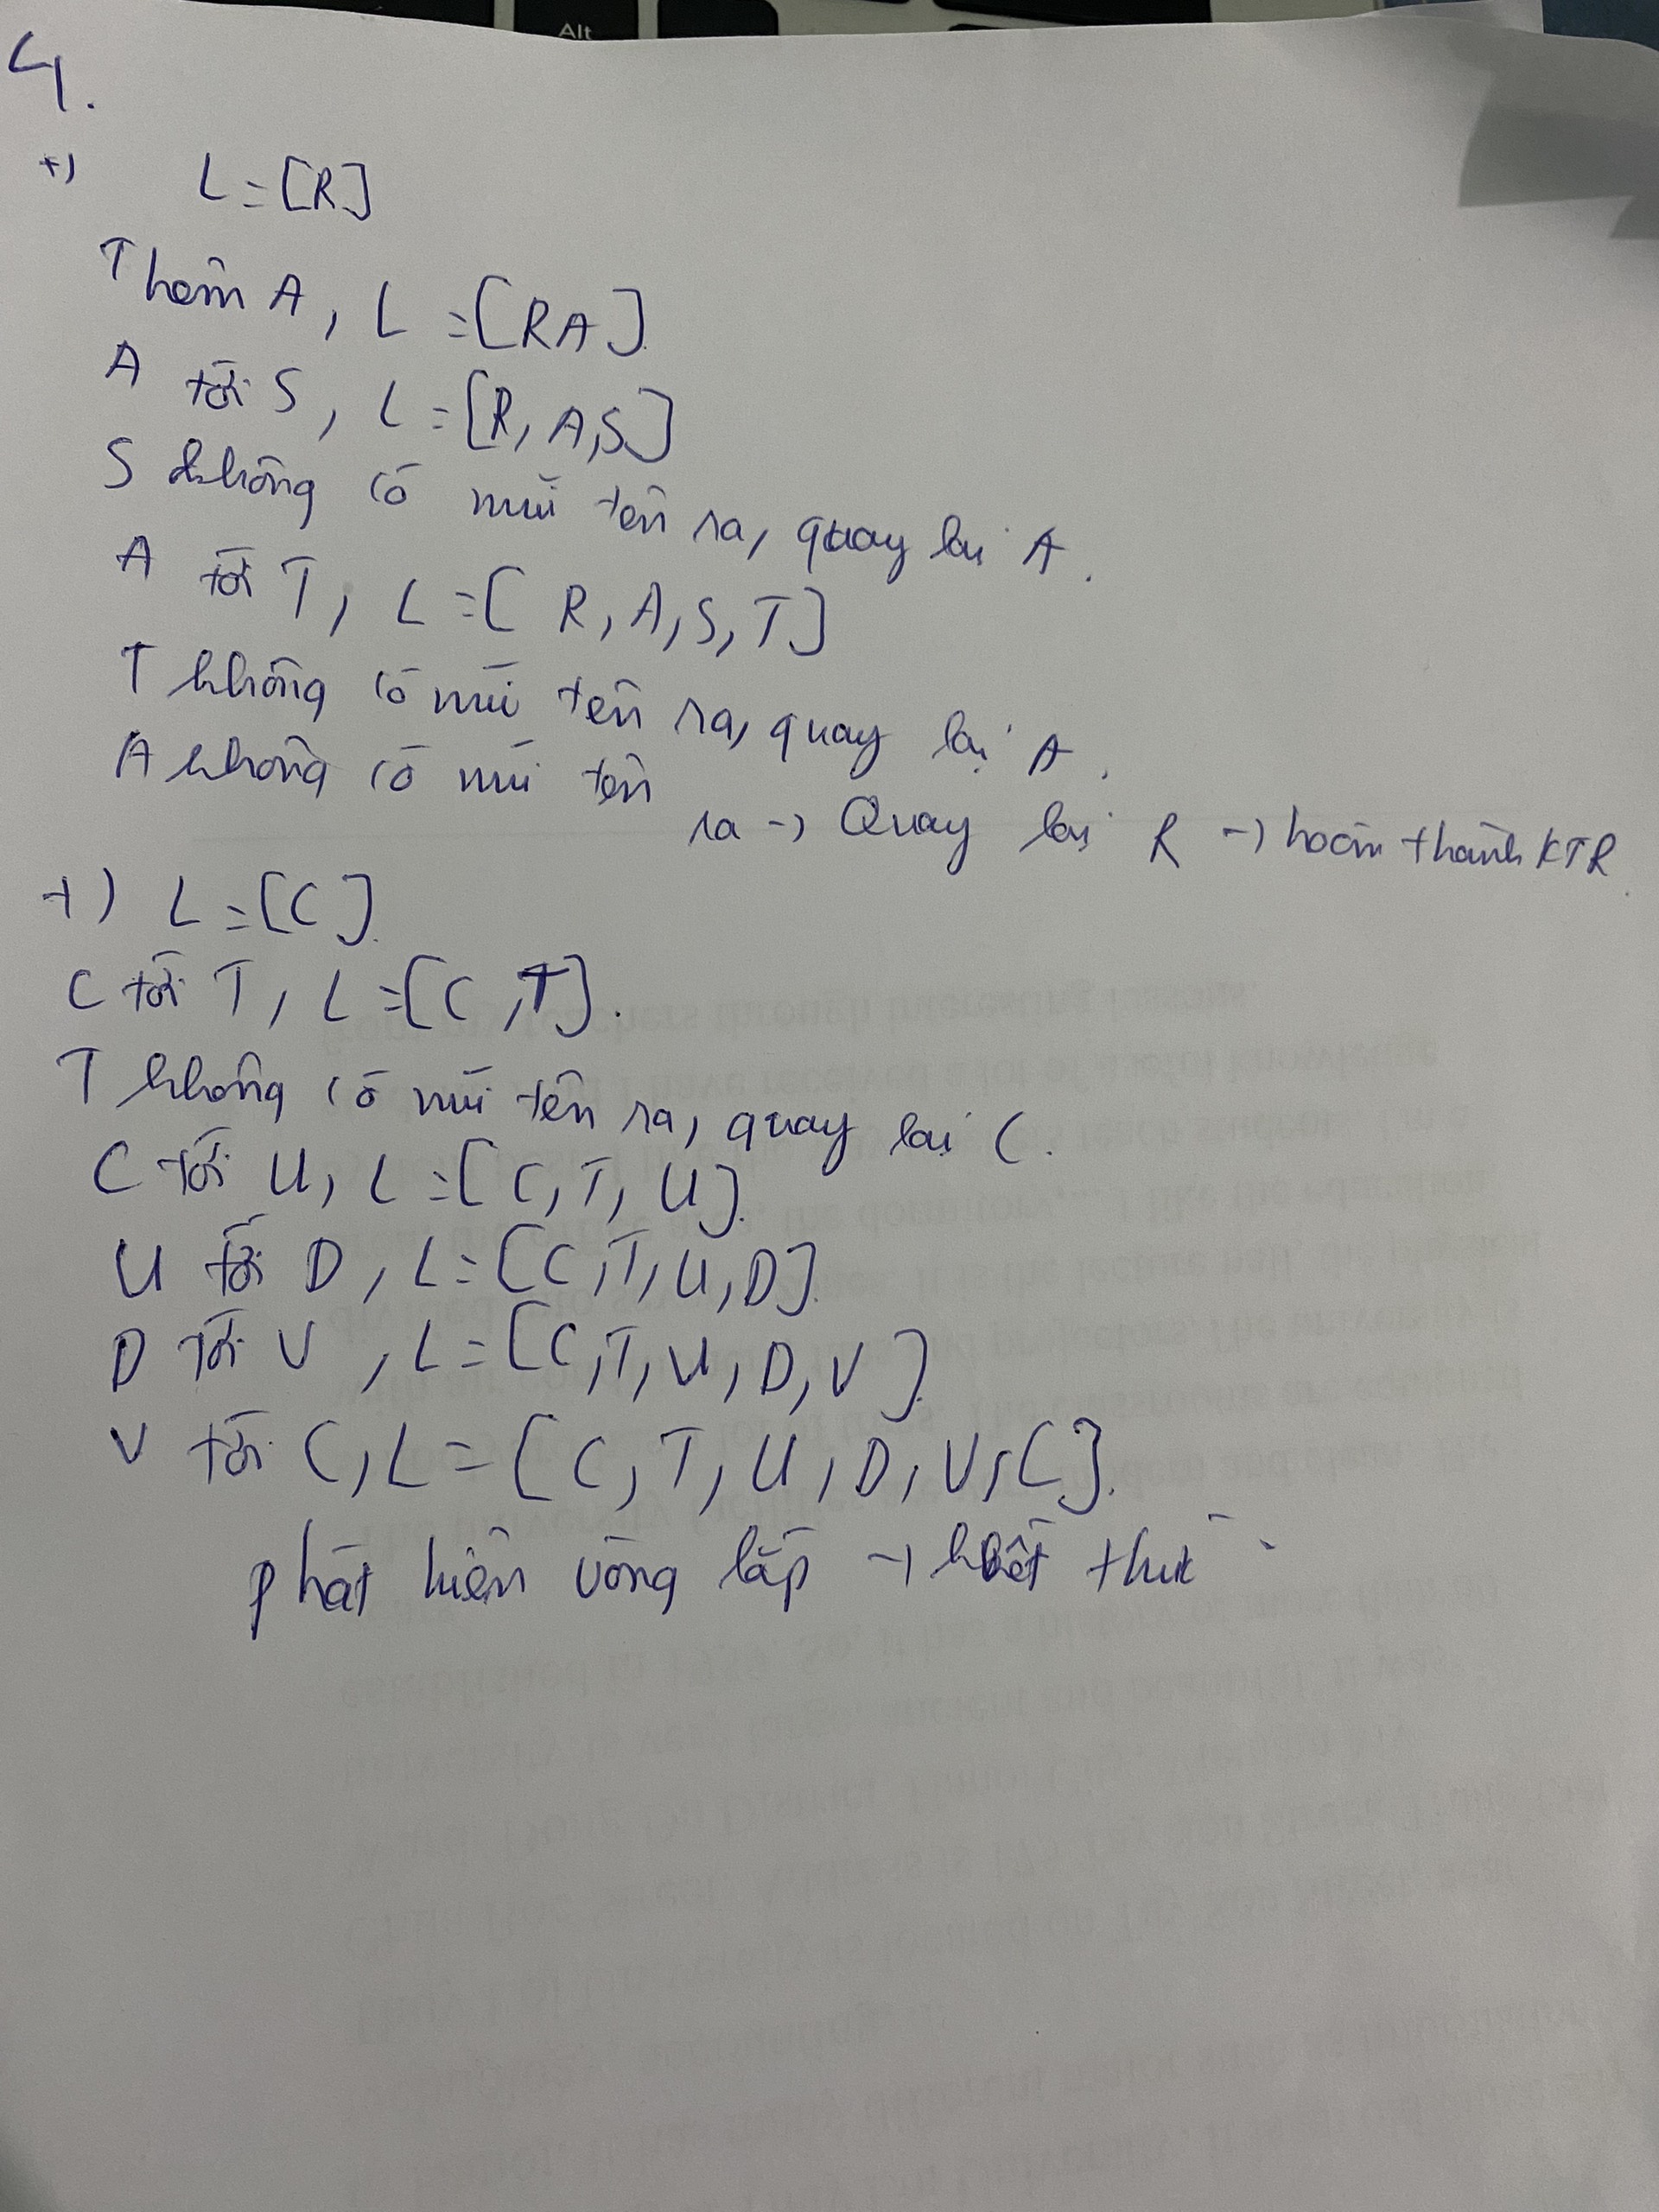 Alt
4.
+) L = [R]
Thêm A, L = [RA].
A tới S, L = [R, A, S]
S không có mũi tên ra, quay lại A.
A tới T, L = [R, A, S, T]
T không có mũi tên ra, quay lại A.
A không có mũi tên ra -> Quay lại R -> hoàn thành KTR.
+) L = [C].
C tới T, L = [C, T].
T không có mũi tên ra, quay lại C.
C tới U, L = [C, T, U].
U tới D, L = [C, T, U, D].
D tới V, L = [C, T, U, D, V].
V tới C, L = [C, T, U, D, V, C].
phát hiện vòng lặp -> kết thúc